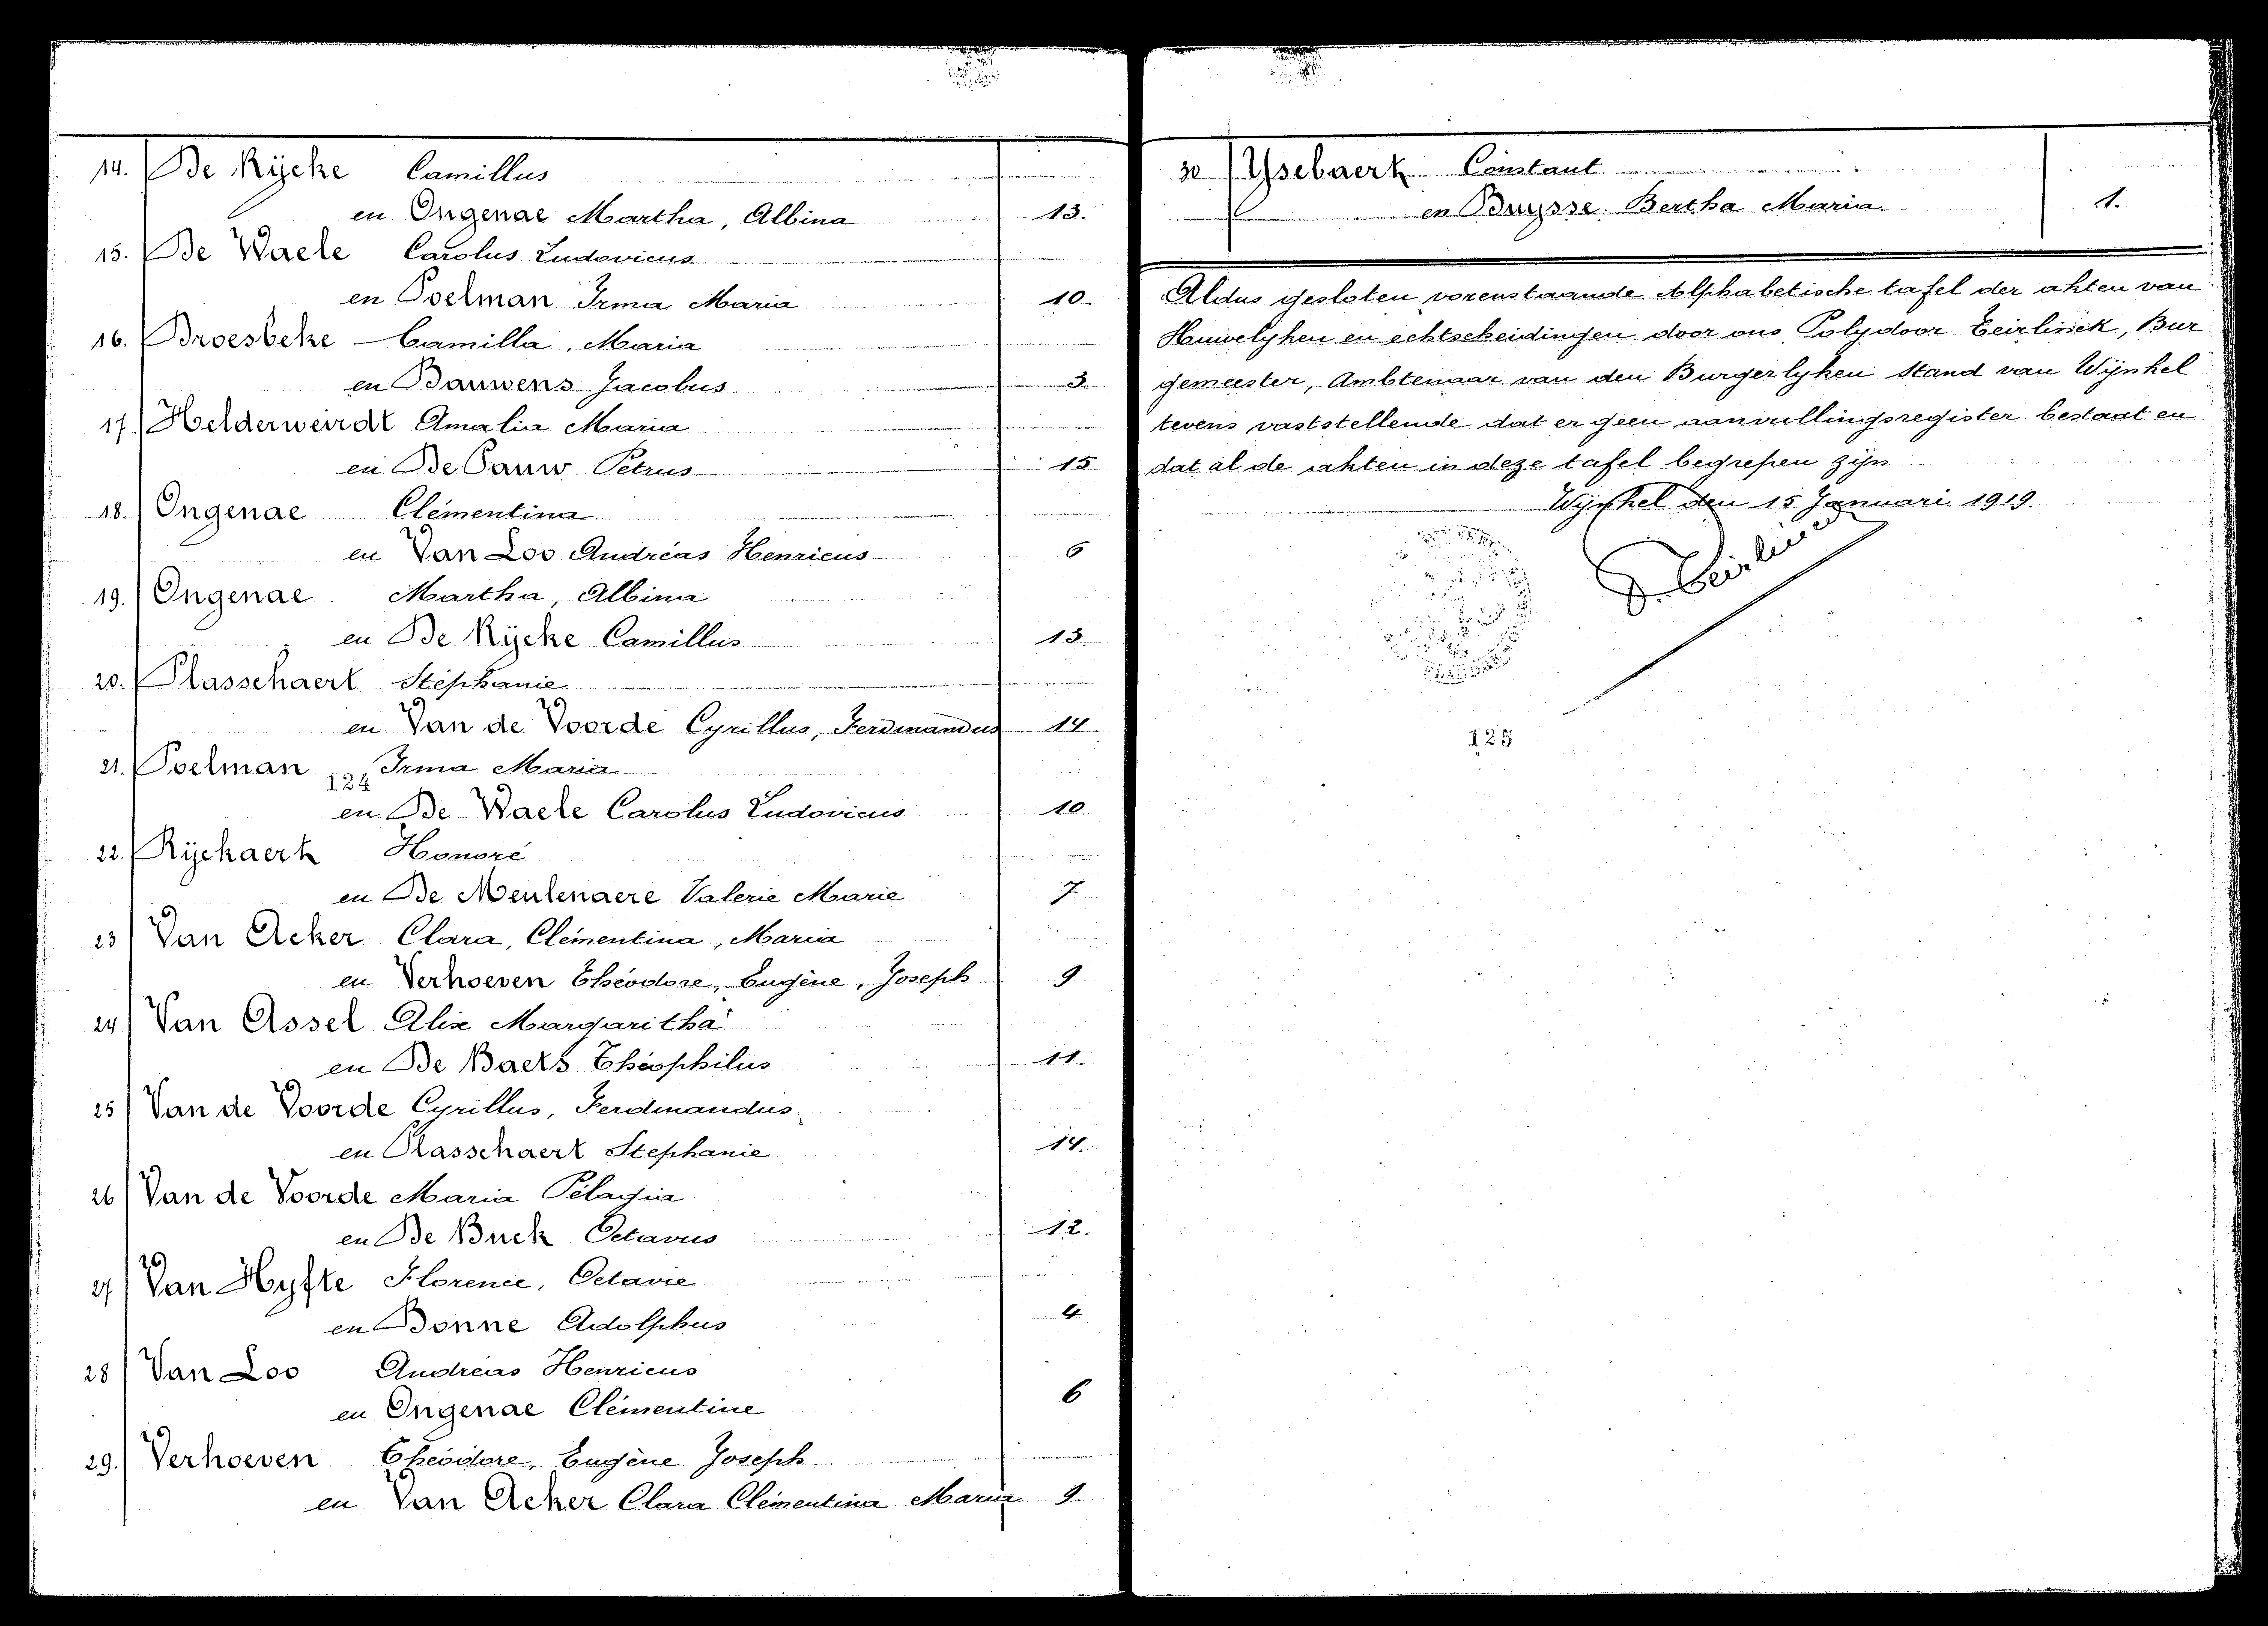 14. De Rÿcke Camillus
en Ongenae Martha, Albina 13.
15. De Waele Carolus Ludovicus
en Poelman Irma Maria 10.
16. Broesbeke Camilla, Maria
en Bauwens Jacobus 3.
17. Helderweirdt Amalia Maria
en De Pauw Petrus 15
18. Ongenae Clémentina
en Van Loo Andréas Henricus 6
19. Ongenae Martha, Albina
en De Rÿcke Camillus 13.
20. Plasschaert Stéphanie
en Van de Voorde Cyrillus, Ferdinandus 14
21. Poelman Irma Maria
124
en De Waele Carolus Ludovicus 10
22. Rÿckaert Honoré
en De Meulenaere Valerie Marie 7
23 Van Acker Clara, Clémentina, Maria
en Verhoeven Théodore, Eugène, Joseph 9
24 Van Assel Alix Margaritha
en De Baets Théophilus 11.
25 Van de Voorde Cyrillus, Ferdinandus.
en Plasschaert Stephanie 14.
26 Van de Voorde Maria Pélagia
en De Buck Octavus 12.
27 Van Hyfte Florence, Octavie
en Bonne Adolphus 4
28 Van Loo Andréas Henricus
en Ongenae Clémentine 6
29. Verhoeven Théodore, Eugène Joseph
en Van Acker Clara Clémentina Maria 9.
30 Ysebaert Constant
en Buysse Bertha Maria 1.
Aldus gesloten vorenstaande Alphabetische tafel der akten van
Huwelyken en echtscheidingen door ons Polydoor Eeirlinck, Bur
gemeester, Ambtenaar van den Burgerlyken Stand van Wÿnkel
tevens vaststellende dat er geen aanvullingsregister bestaat en
dat al de akten in deze tafel begrepen zijn
Wÿnkel den 15 Januari 1919.
125